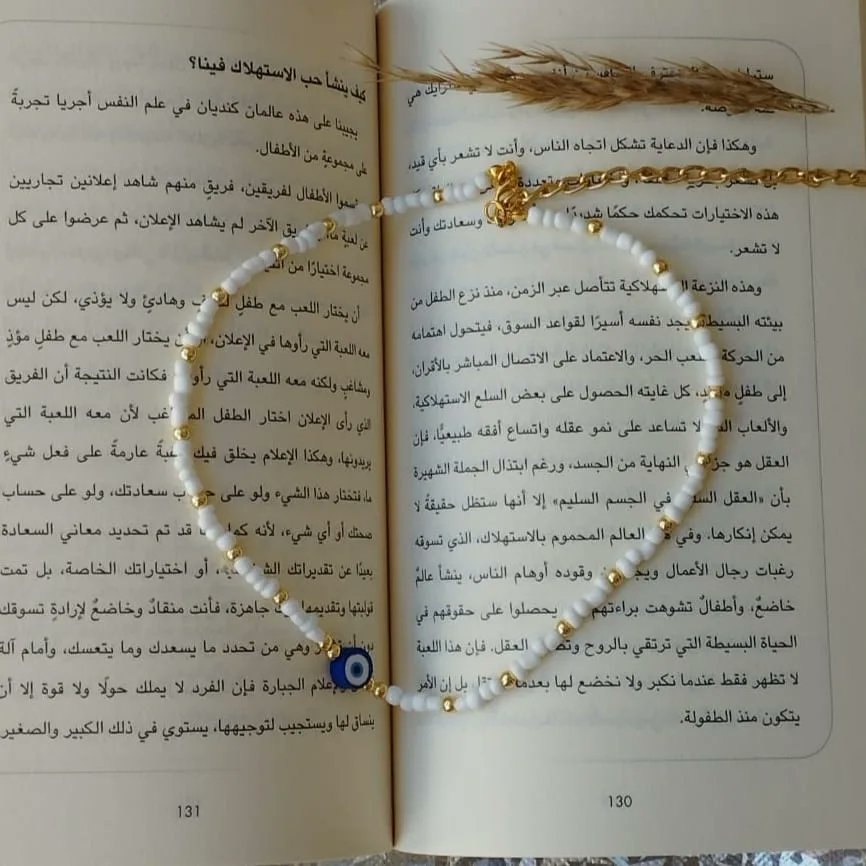 وهكذا فإن الدعاية تشكل اتجاه الناس، وأنت لا تشعر بأي قيد،
هذه الاختيارات تحكمك حكمًا وسعادتك وأنت
لا تشعر.
وهذه النزعة تتأصل عبر الزمن، منذ نزع الطفل من
بيئته البسيطة يجد نفسه أسيرًا لقواعد السوق، فيتحول اهتمامه
من الحركة الحر، والاعتماد على الاتصال المباشر بالأقران،
إلى طفلٍ كل غايته الحصول على بعض السلع الاستهلاكية،
والألعاب لا تساعد على نمو عقله واتساع أفقه طبيعيًّا، فإن
العقل هو النهاية من الجسد، ورغم ابتذال الجملة الشهيرة
بأن «العقل في الجسم السليم» إلا أنها ستظل حقيقةً لا
يمكن إنكارها. وفي العالم المحموم بالاستهلاك، الذي تسوقه
رغبات رجال الأعمال وقوده أوهام الناس، ينشأ عالمٌ
خاضعٌ، وأطفالٌ تشوهت براءتهم يحصلوا على حقوقهم في
الحياة البسيطة التي ترتقي بالروح العقل. فإن هذا اللعبة
لا تظهر فقط عندما نكبر ولا نخضع لها بل إن الأمر
يتكون منذ الطفولة.
130
كيف ينشأ حب الاستهلاك فينا؟
يجيبنا على هذه عالمان كنديان في علم النفس أجريا تجربةً
على مجموعةٍ من الأطفال.
قسموا الأطفال لفريقين، فريقٍ منهم شاهد إعلانين تجاريين
عن لعبة الآخر لم يشاهد الإعلان، ثم عرضوا على كل
مجموعة اختيارًا من
أن يختار اللعب مع طفلٍ وهادئٍ ولا يؤذي، لكن ليس
معه اللعبة التي رأوها في الإعلان، يختار اللعب مع طفلٍ مؤذٍ
ومشاغبٍ ولكنه معه اللعبة التي فكانت النتيجة أن الفريق
الذي رأى الإعلان اختار الطفل لأن معه اللعبة التي
يريدونها، وهكذا الإعلام يخلق فيك عارمةً على فعل شيءٍ
ما، فتختار هذا الشيء ولو على سعادتك، ولو على حساب
صحتك أو أي شيء، لأنه قد تم تحديد معاني السعادة
بعيدًا عن تقديراتك أو اختياراتك الخاصة، بل تمت
قولبتها وتقديمها جاهزة، فأنت منقادٌ وخاضعٌ لإرادةٍ تسوقك
وهي من تحدد ما يسعدك وما يتعسك، وأمام آلة
الإعلام الجبارة فإن الفرد لا يملك حولًا ولا قوة إلا أن
ينساق لها ويستجيب لتوجيهها، يستوي في ذلك الكبير والصغير
131